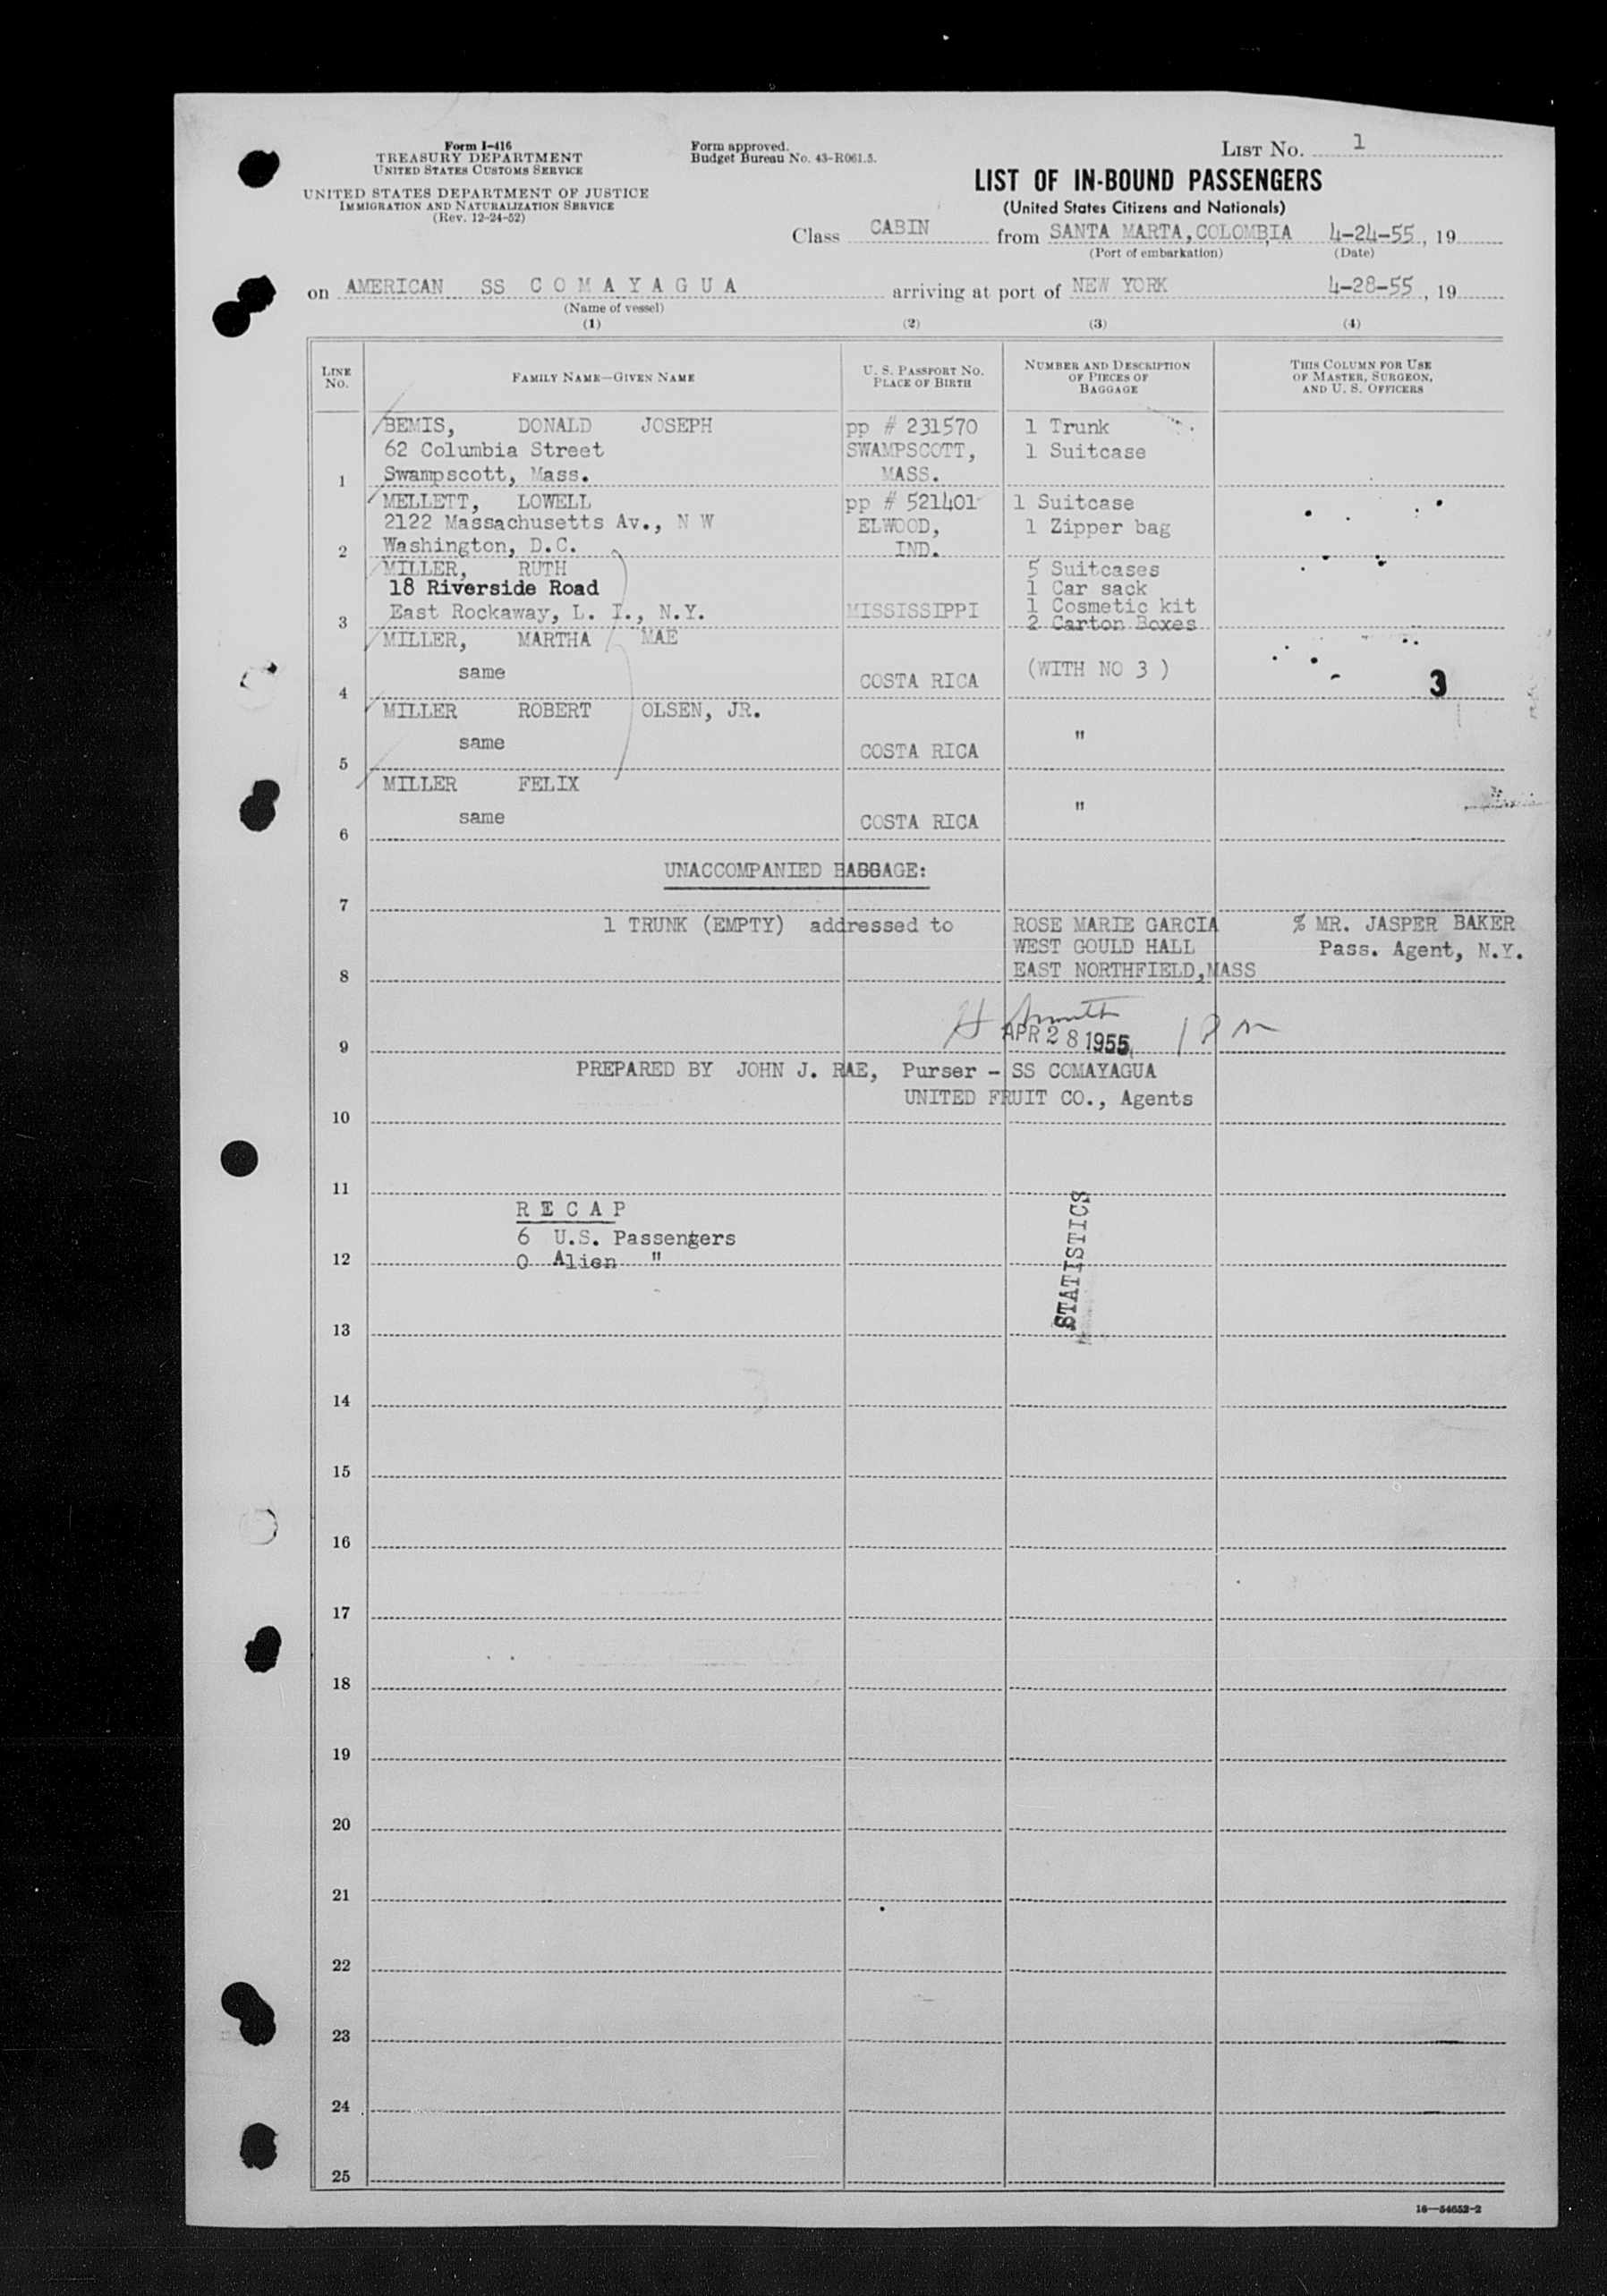 Form I-416
TREASURY DEPARTMENT
UNITED STATES CUSTOMS SERVICE
UNITED STATES DEPARTMENT OF JUSTICE
IMMIGRATION AND NATURALIZATION SERVICE
(Rev. 12-24-52)
Form approved.
Budget Bureau No. 43-R061.5.
LIST No. 1
LIST OF IN-BOUND PASSENGERS
(United States Citizens and Nationals)
Class CABIN from SANTA MARTA, COLOMBIA 4-24-55, 19
(Port of embarkation) (Date)
on AMERICAN SS C O M A Y A G U A arriving at port of NEW YORK 4-28-55, 19
(Name of vessel)
(1) (2) (3) (4)
LINE No.
FAMILY NAME—GIVEN NAME
U. S. PASSPORT No.
PLACE OF BIRTH
NUMBER AND DESCRIPTION
OF PIECES OF
BAGGAGE
THIS COLUMN FOR USE
OF MASTER, SURGEON,
AND U. S. OFFICERS
BEMIS, DONALD JOSEPH pp # 231570 1 Trunk
62 Columbia Street SWAMPSCOTT, 1 Suitcase
1 Swampscott, Mass. MASS.
MELLETT, LOWELL pp # 521401 1 Suitcase
2122 Massachusetts Av., N W ELWOOD, 1 Zipper bag
2 Washington, D.C. IND.
MILLER, RUTH 5 Suitcases
18 Riverside Road 1 Car sack
East Rockaway, L. I., N.Y. MISSISSIPPI 1 Cosmetic kit
3 2 Carton Boxes
MILLER, MARTHA MAE
same COSTA RICA (WITH NO 3 )
4 3
MILLER ROBERT OLSEN, JR.
same COSTA RICA "
5
MILLER FELIX
same COSTA RICA "
6
UNACCOMPANIED BAGGAGE:
7
1 TRUNK (EMPTY) addressed to ROSE MARIE GARCIA % MR. JASPER BAKER
WEST GOULD HALL Pass. Agent, N.Y.
8 EAST NORTHFIELD, MASS
APR 28 1955
9
PREPARED BY JOHN J. RAE, Purser - SS COMAYAGUA
UNITED FRUIT CO., Agents
10
11
R E C A P
6 U.S. Passengers
12 0 Alien "
STATISTICS
13
14
15
16
17
18
19
20
21
22
23
24
25
16—54652-2